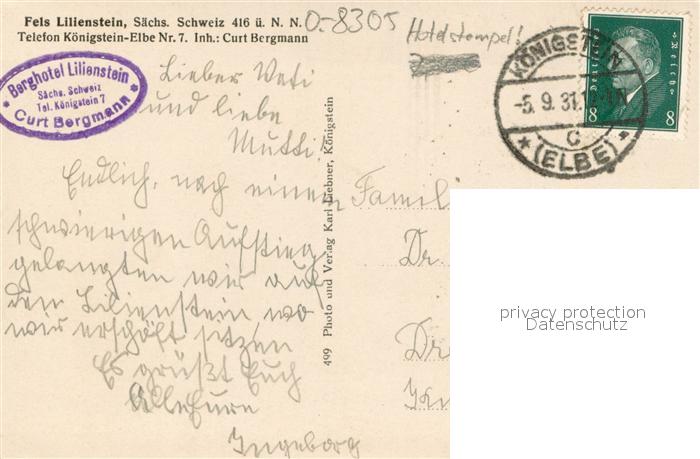 Fels Lilienstein, Sächs. Schweiz 416 ü. N. N.
Telefon Königstein-Elbe Nr. 7. Inh.: Curt Bergmann
O-8305
Hotelstempel!
Berghotel Lilienstein
Sächs. Schweiz
Tel. Königstein 7
Curt Bergmann
KÖNIGSTEIN
-5.9.31.
C
(ELBE)
Deutsches Reich
8 8
Lieber Vati
und liebe
Mutti!
Endlich, nach einem
schwierigen Aufstieg,
gelangten wir auf
den Lilienstein, wo
wir erschöft sitzen
Es grüßt Euch
Alle Eure
Ingeborg
499 Photo und Verlag Karl Liebner, Königstein
Famili
Dr.
Dre
privacy protection
Datenschutz